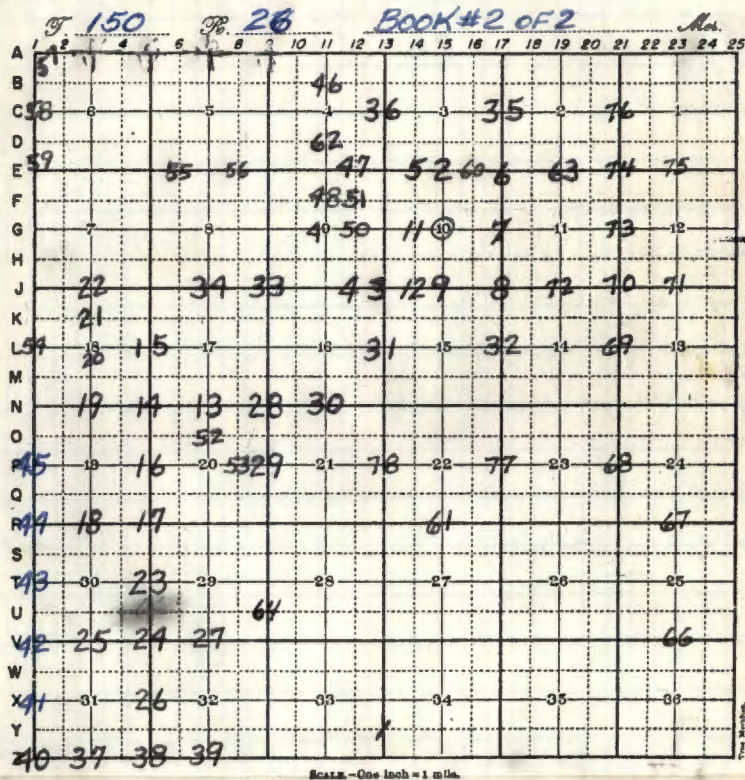 T. 150 R. 26 BOOK #2 OF 2 Mer.
1 2 4 6 7 8 9 10 11 12 13 14 15 16 17 18 19 20 21 22 23 24 25
A 57
B 46
C 58 6 5 4 36 3 35 2 76 1
D 62
E 59 55 56 47 5 2 60 6 63 74 75
F 48 51
G 7 8 50 11 10 7 11 73 12
H
J 22 34 33 4 3 12 9 8 72 70 71
K 21
L 54 18 20 15 17 16 31 15 32 14 69 13
M
N 19 14 13 28 30
O 52
P 45 19 16 20 53 29 21 78 22 77 23 68 24
Q
R 44 18 17 61 67
S
T 43 30 23 29 28 27 26 25
U 64
V 42 25 24 27 66
W
X 41 31 26 32 33 34 35 36
Y 1
Z 40 37 38 39
SCALE.—One inch = 1 mile.